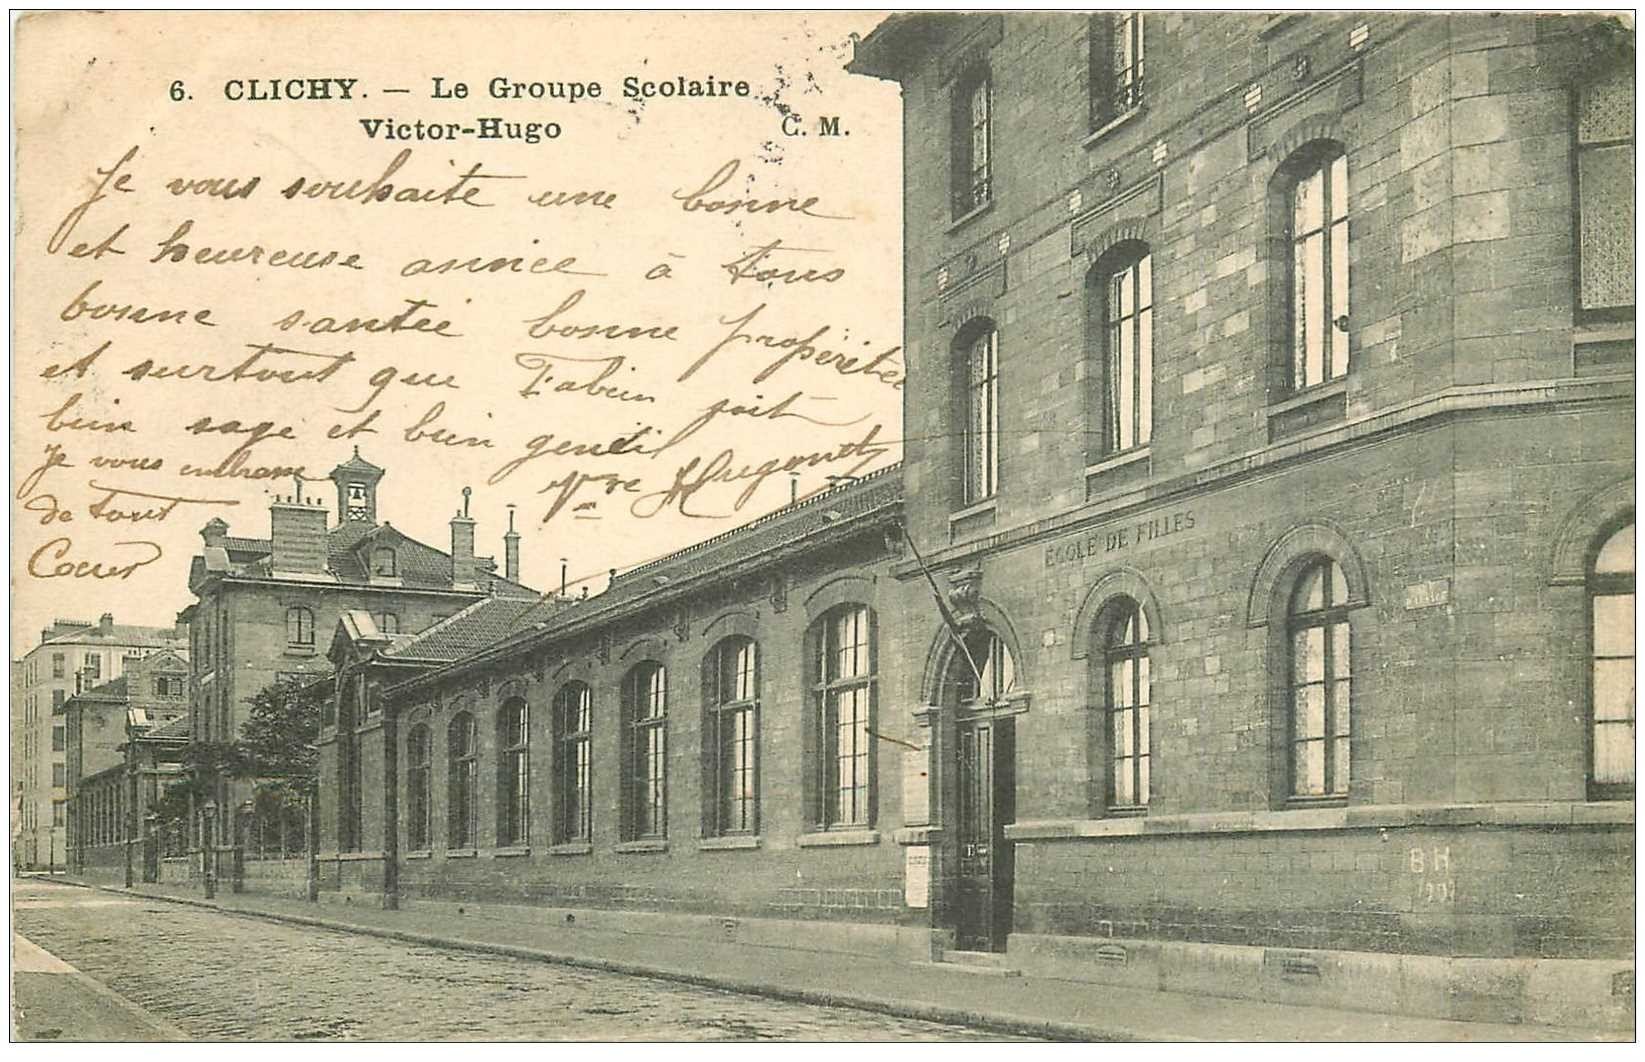 6. CLICHY. — Le Groupe Scolaire
Victor-Hugo
C. M.
Je vous souhaite une bonne
et heureuse année à tous
bonne santée bonne propéritée
et surtout que Fabien soit
bien sage et bien gentil
Je vous embrasse
de tout
Coeur
Vve Hugond
ÉCOLE DE FILLES
B H